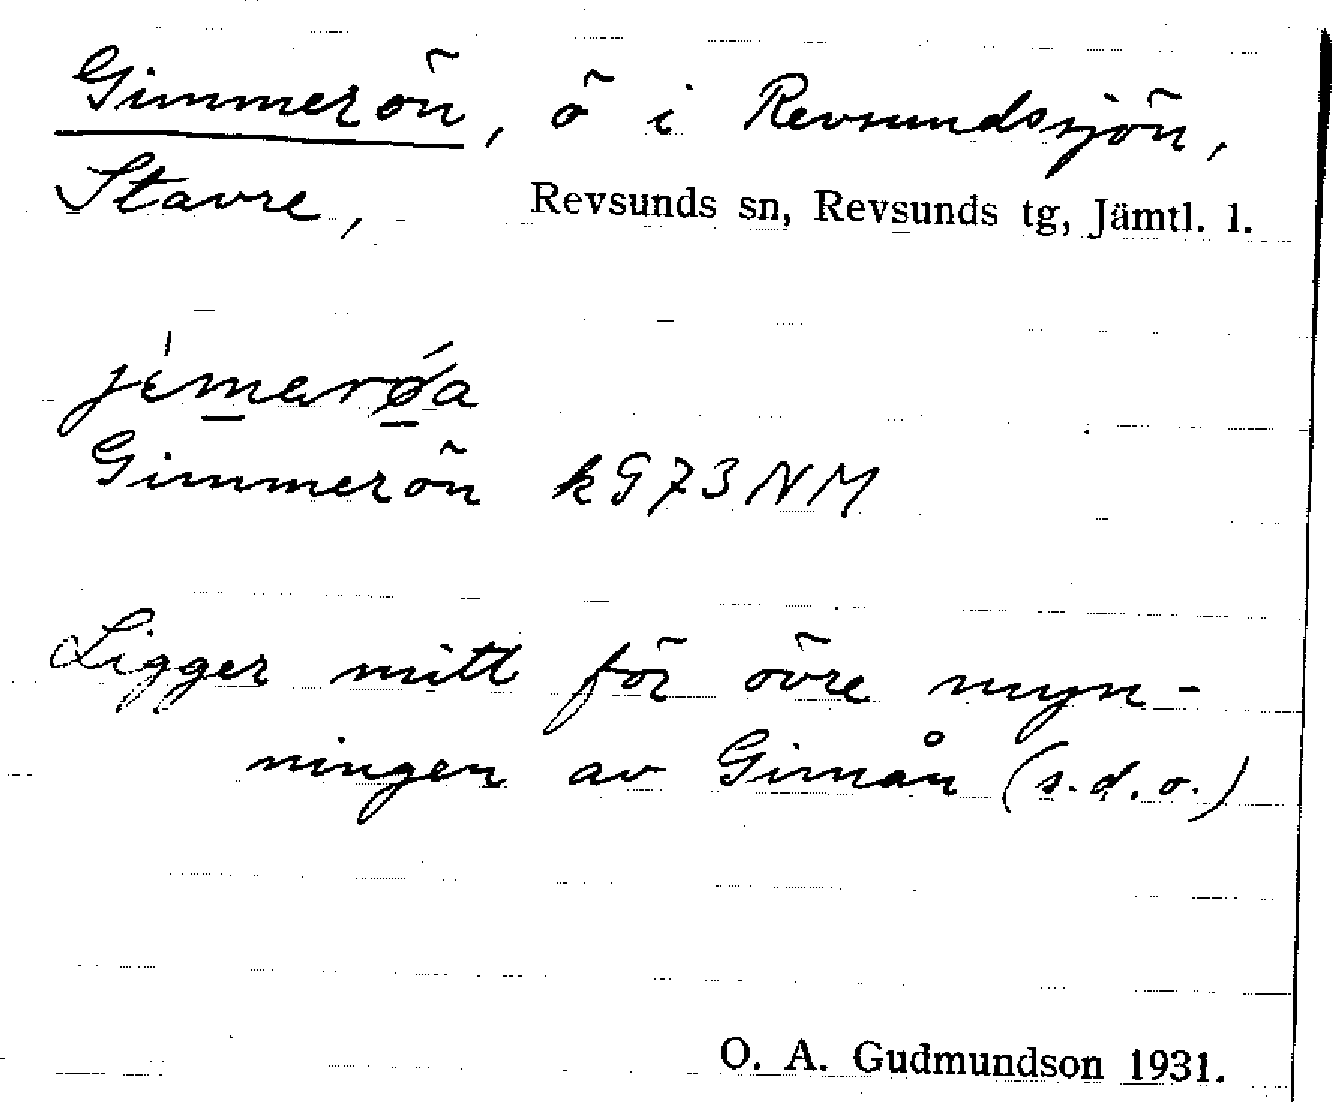 Gimmerön, ö i Revsundsjön,
Stavre, Revsunds sn, Revsunds tg, Jämtl. l.
Gimmerön kG73NM
Ligger mitt för övre myn-
ningen av Gimån (s.d.o.)
O. A. Gudmundson 1931.